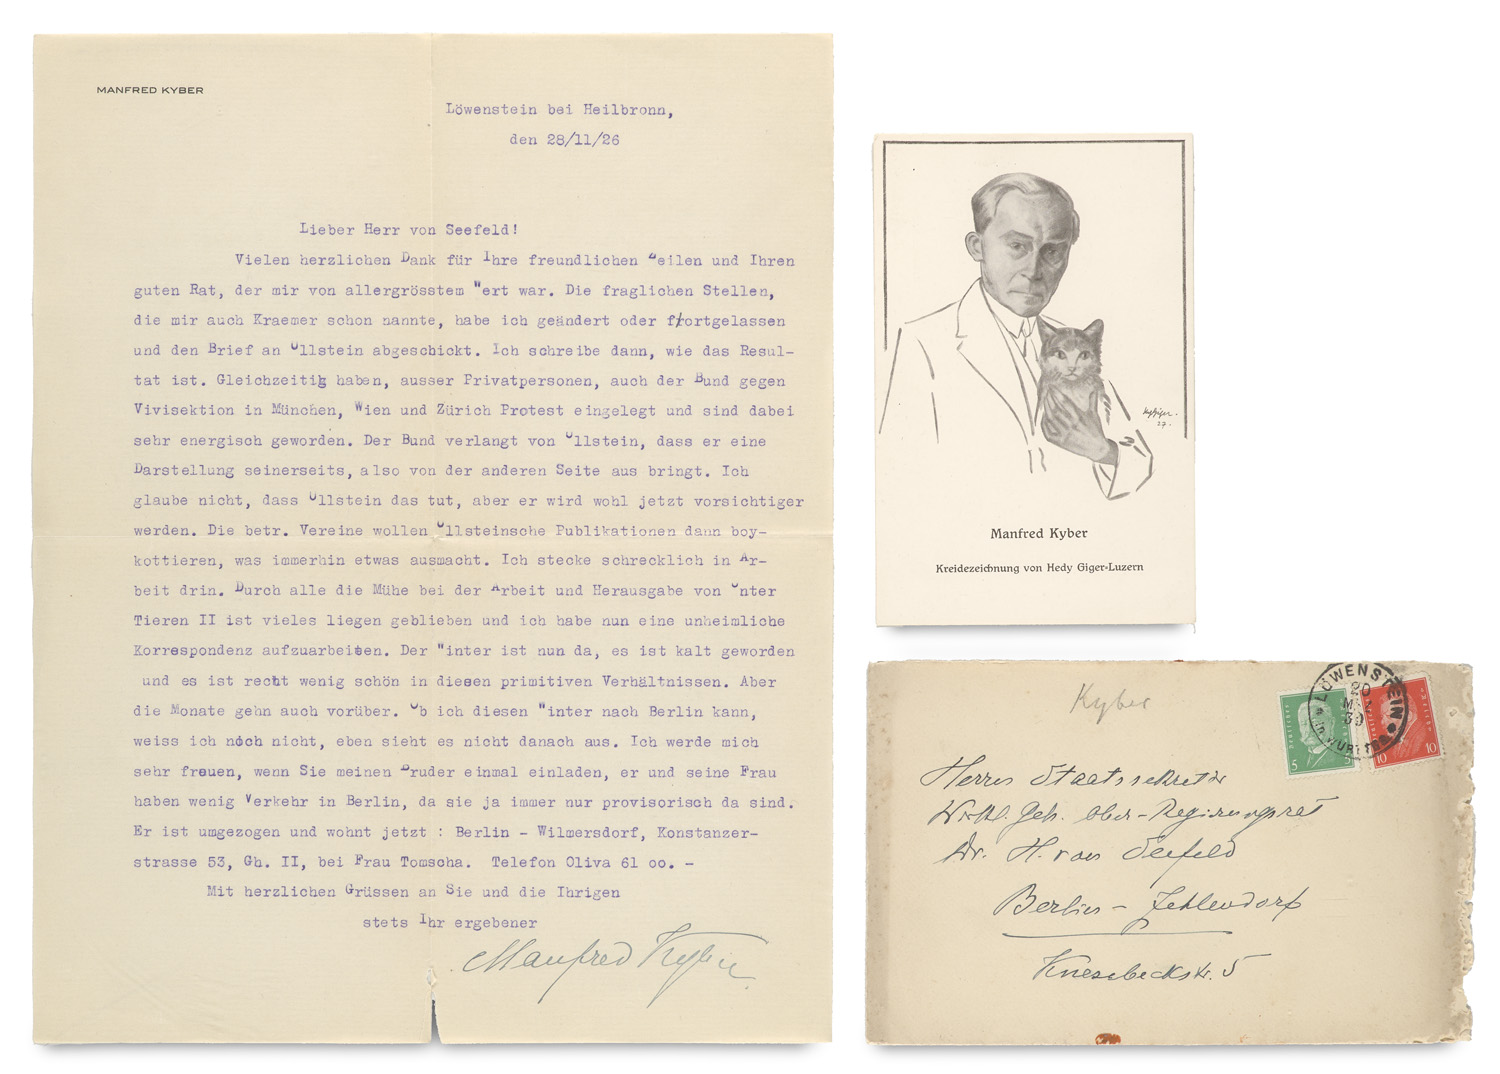 MANFRED KYBER
Löwenstein bei Heilbronn,
den 28/11/26
Lieber Herr von Seefeld!
Vielen herzlichen Dank für Ihre freundlichen Zeilen und Ihren
guten Rat, der mir von allergrösstem Wert war. Die fraglichen Stellen,
die mir auch Kraemer schon nannte, habe ich geändert oder fortgelassen
und den Brief an Ullstein abgeschickt. Ich schreibe dann, wie das Resul-
tat ist. Gleichzeitig haben, ausser Privatpersonen, auch der Bund gegen
Vivisektion in München, Wien und Zürich Protest eingelegt und sind dabei
sehr energisch geworden. Der Bund verlangt von Ullstein, dass er eine
Darstellung seinerseits, also von der anderen Seite aus bringt. Ich
glaube nicht, dass Ullstein das tut, aber er wird wohl jetzt vorsichtiger
werden. Die betr. Vereine wollen Ullsteinsche Publikationen dann boy-
kottieren, was immerhin etwas ausmacht. Ich stecke schrecklich in Ar-
beit drin. Durch alle die Mühe bei der Arbeit und Herausgabe von Unter
Tieren II ist vieles liegen geblieben und ich habe nun eine unheimliche
Korrespondenz aufzuarbeiten. Der Winter ist nun da, es ist kalt geworden
und es ist recht wenig schön in diesen primitiven Verhältnissen. Aber
die Monate gehn auch vorüber. Ob ich diesen Winter nach Berlin kann,
weiss ich noch nicht, eben sieht es nicht danach aus. Ich werde mich
sehr freuen, wenn Sie meinen Bruder einmal einladen, er und seine Frau
haben wenig Verkehr in Berlin, da sie ja immer nur provisorisch da sind.
Er ist umgezogen und wohnt jetzt : Berlin - Wilmersdorf, Konstanzer-
strasse 53, Gh. II, bei Frau Tomscha. Telefon Oliva 61 oo. -
Mit herzlichen Grüssen an Sie und die Ihrigen
stets Ihr ergebener
Manfred Kyber
27.
Manfred Kyber
Kreidezeichnung von Hedy Giger-Luzern
Kyber
LÖWENSTEIN
20
30
5
5
10
10
Herrn Staatssekretär
Wirkl. Geh. Ober-Regierungsrat
Dr. H. von Seefeld
Berlin - Zehlendorf
Knesebeckstr. 5